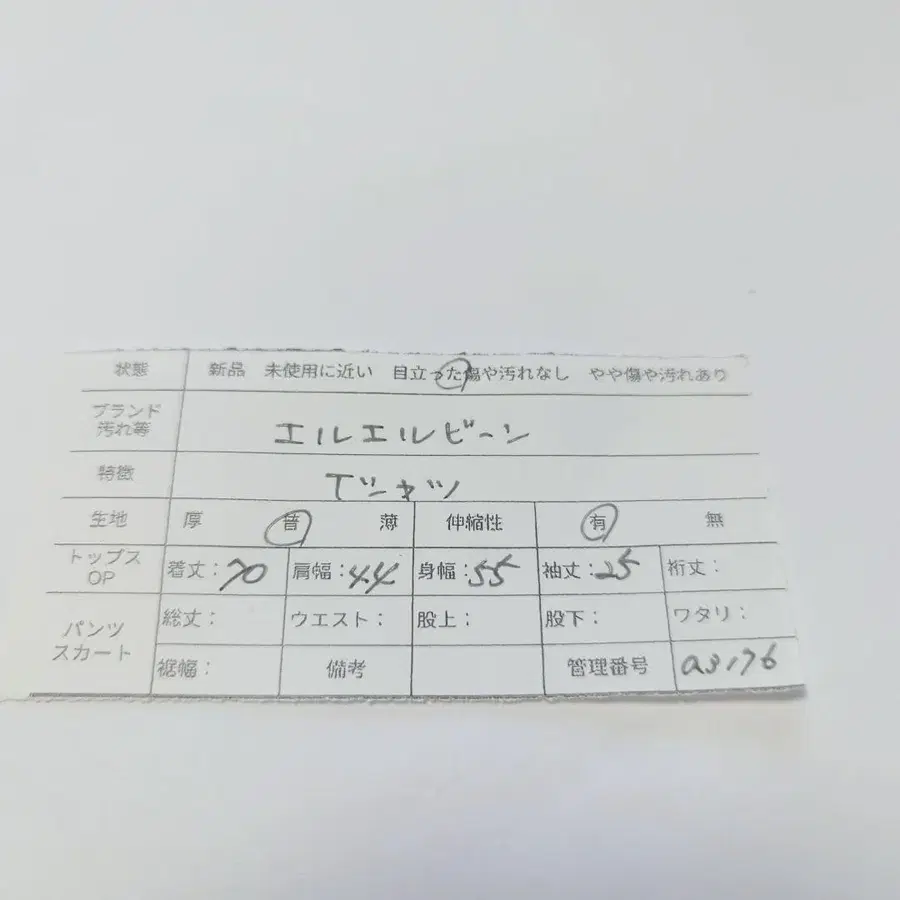 状態 新品 未使用に近い 目立った傷や汚れなし やや傷や汚れあり
ブランド
汚れ等 エルエルビーン
特徴 Tシャツ
生地 厚 普 薄 伸縮性 有 無
トップス
OP 着丈:70 肩幅:44 身幅:55 袖丈:25 裄丈:
パンツ
スカート 総丈: ウエスト: 股上: 股下: ワタリ:
裾幅: 備考 管理番号 a3176